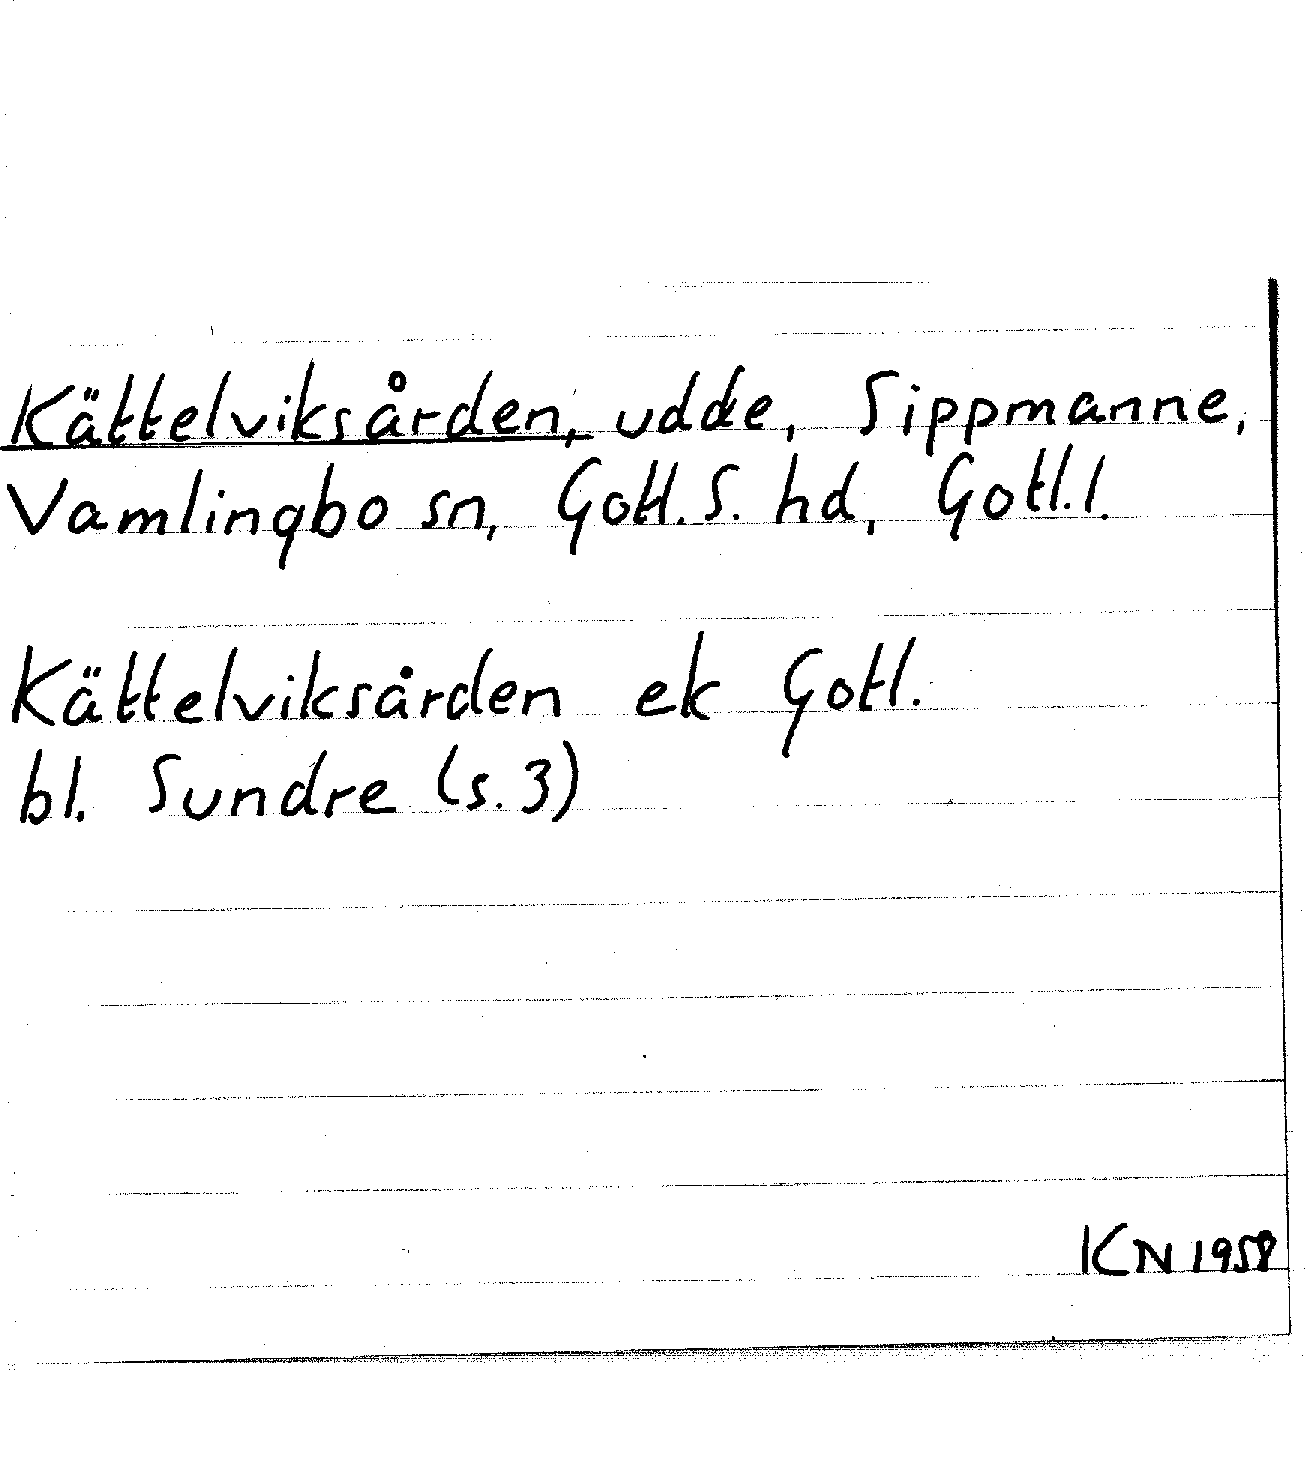 Kättelviksården, udde, Sippmanne,
Vamlingbo sn, Gotl. S. hd, Gotl. l.
Kättelviksården ek Gotl.
bl. Sundre (s. 3)
KN 1958